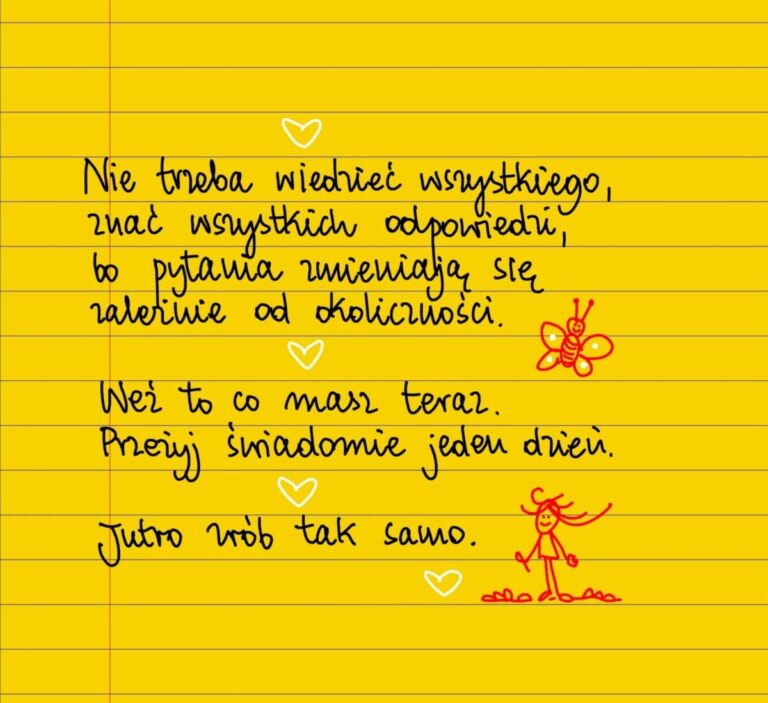 Nie trzeba wiedzieć wszystkiego,
znać wszystkich odpowiedzi,
bo pytania zmieniają się
zależnie od okoliczności.
Weź to co masz teraz.
Przeżyj świadomie jeden dzień.
Jutro zrób tak samo.